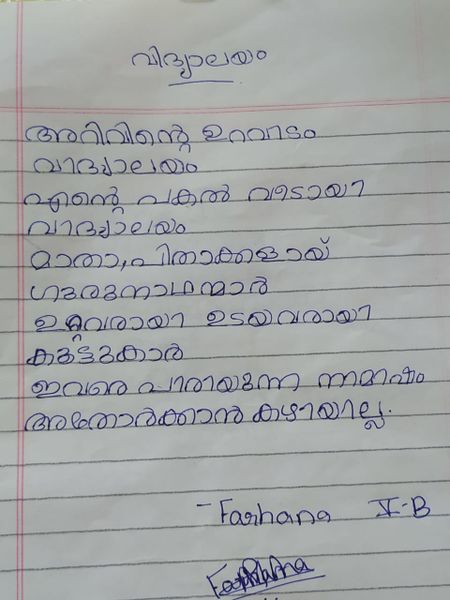 വിദ്യാലയം
അറിവിന്റെ ഉറവാടം
വിദ്യാലയം
എന്റെ പകൽ വീടായി
വിദ്യാലയം
മാതാ,പിതാക്കളായ്
ഗുരുനാഥന്മാർ
ഉറ്റവരായി ഉടയവരായി
കൂട്ടുകാർ
ഇവരെ പിരിയുന്ന നിമിഷം
അതോർക്കാൻ കഴിയില്ല.
- Farhana V-B
Farhana